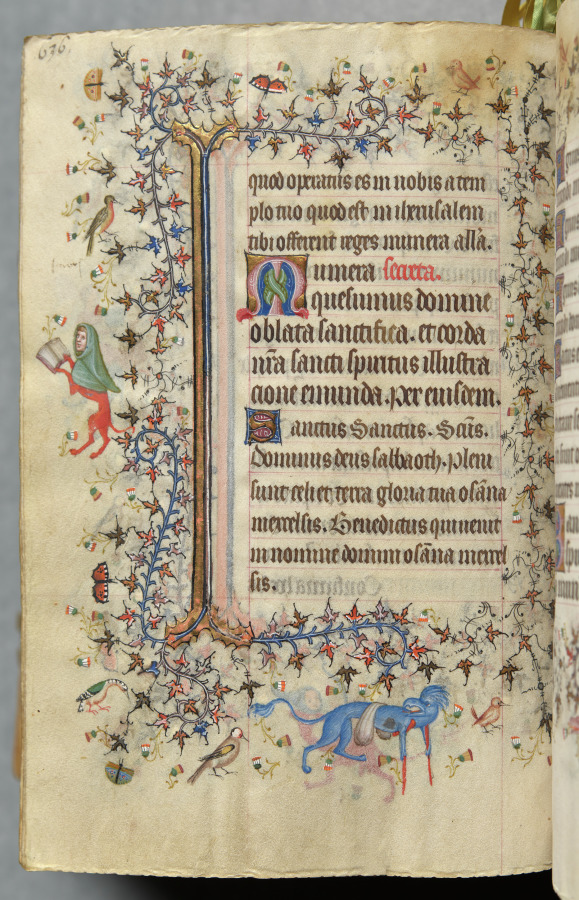 636.
quod operatus es in nobis a tem
plo tuo quod est in iherusalem
tibi offerent reges munera alla.
Munera secreta.
quesumus domine
oblata sanctifica. et corda
nra sancti spiritus illustra
cione emunda. Per eiusdem.
Sanctus Sanctus. Scus.
Dominus deus sabbaoth. Pleni
sunt celi et terra gloria tua osāna
in excelsis. Benedictus qui uenit
in nomine domini osāna in excel
sis.